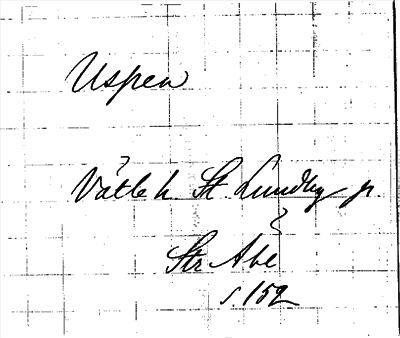 Uspen
Vätle h. St. Lundby sn.
Str Abe
s. 152